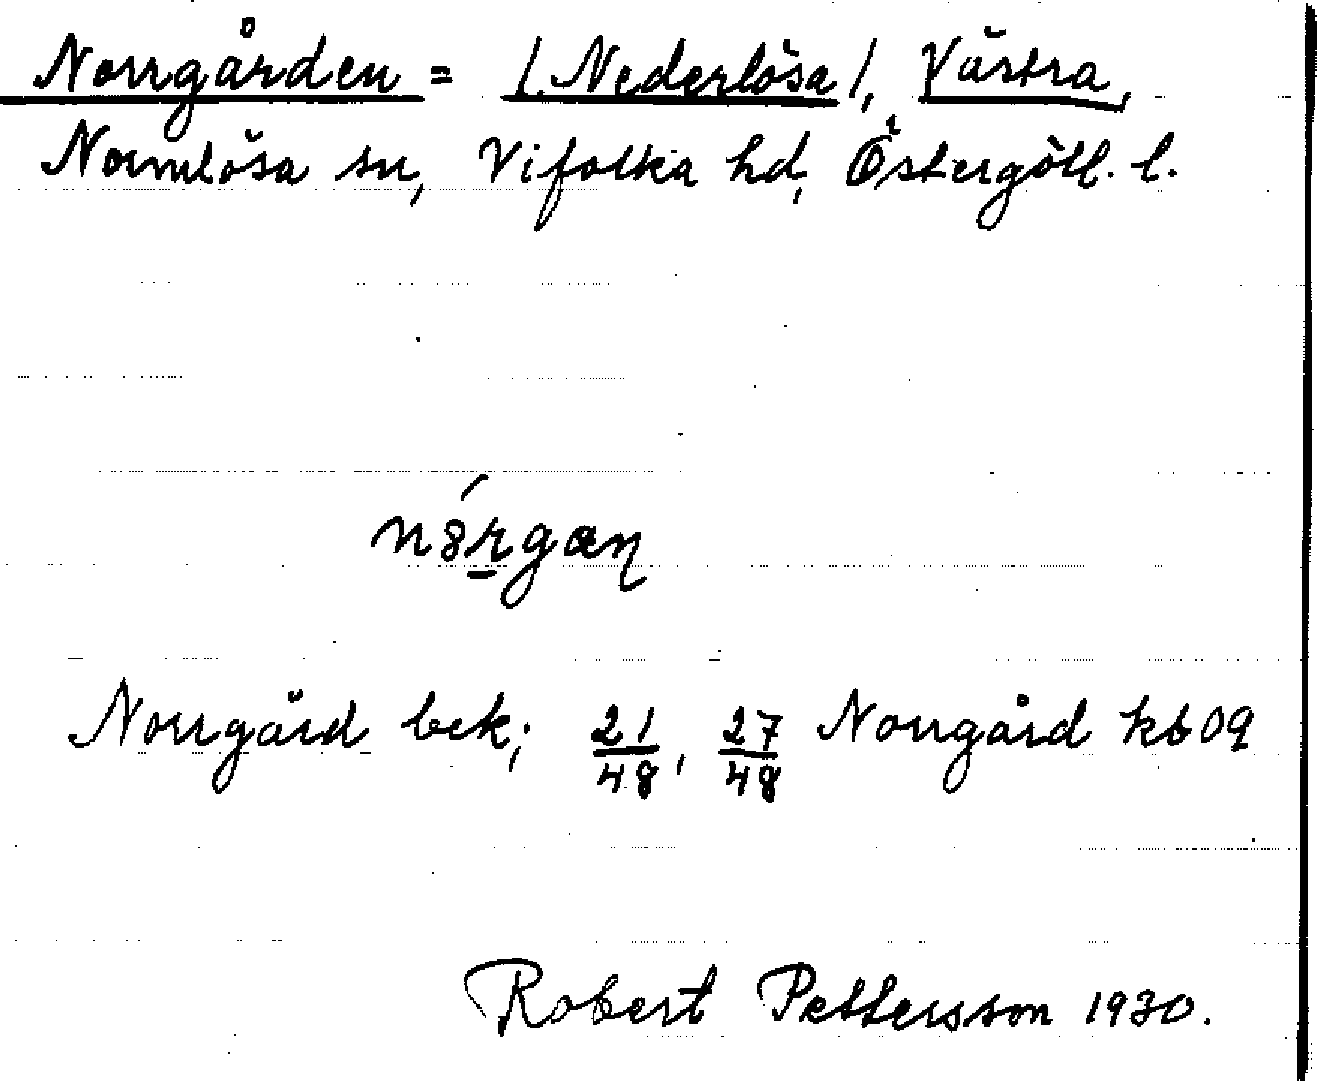 Norrgården = /Nederlösa/, Västra,
Normlösa sn, Vifolka hd, Östergötl. l.
nórgæn
Norrgård bek; 21/48, 27/48 Norrgård kb 09
Robert Pettersson 1930.